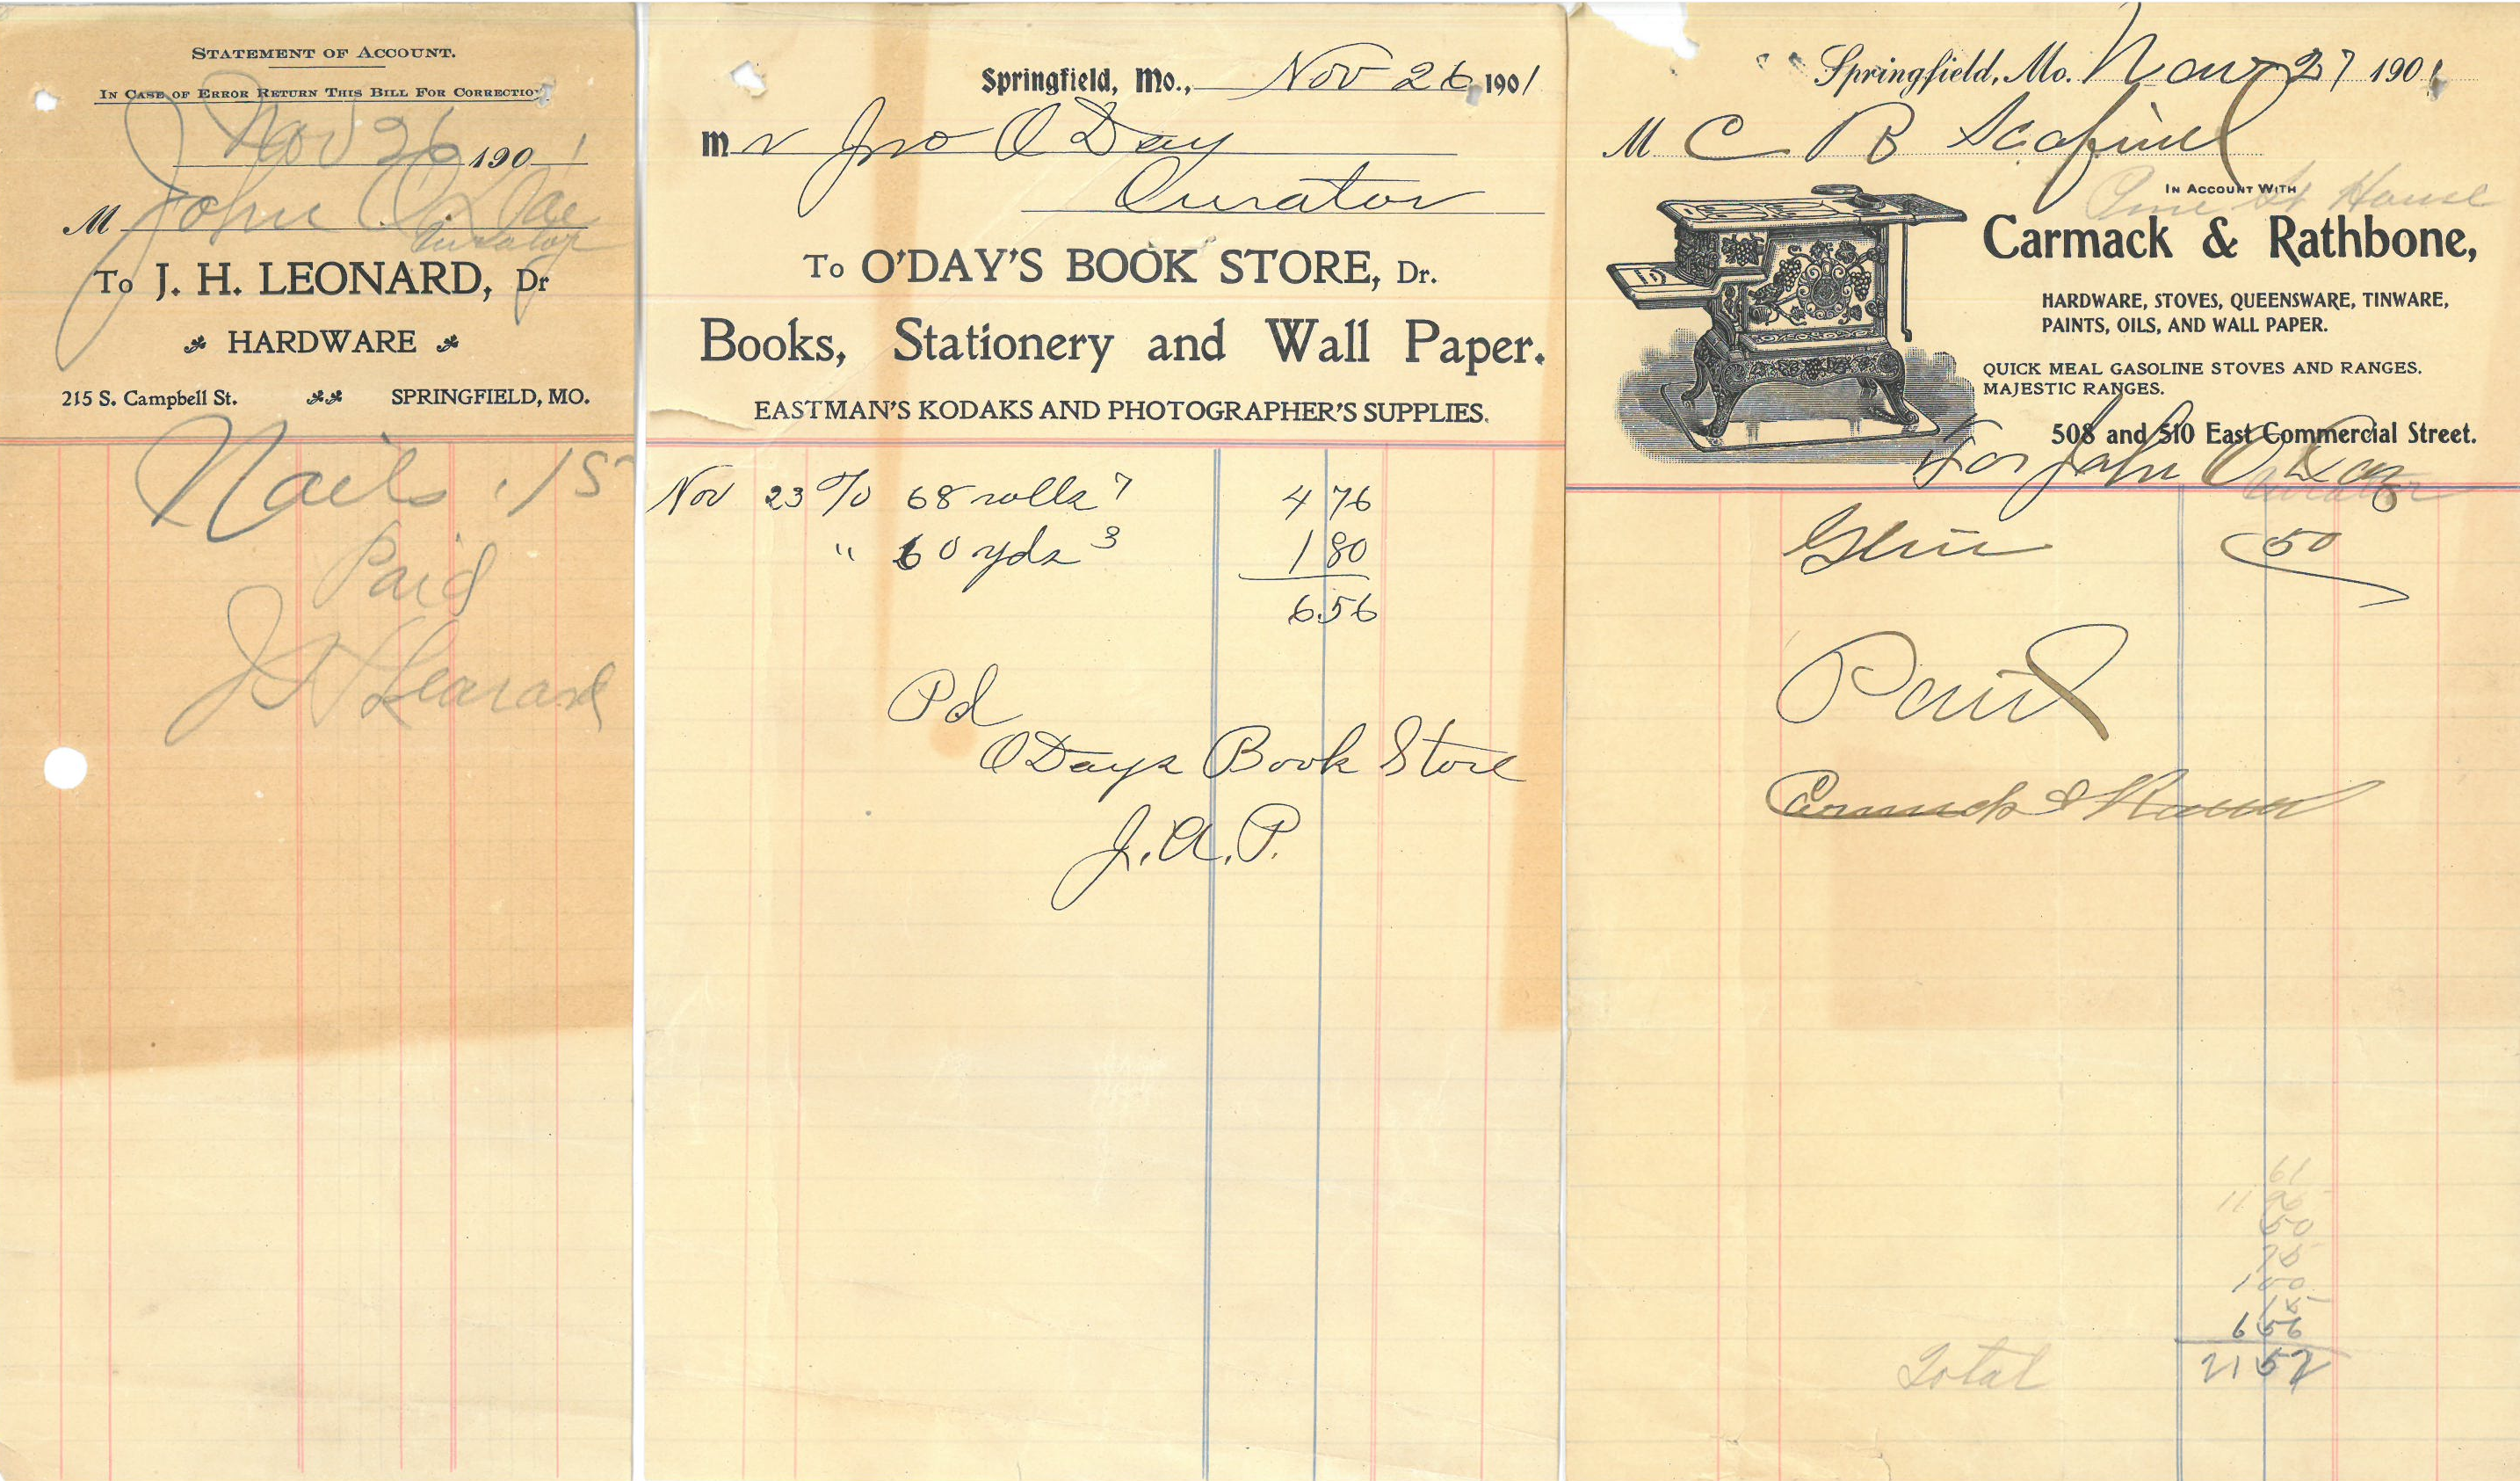 STATEMENT OF ACCOUNT.
IN CASE OF ERROR RETURN THIS BILL FOR CORRECTION
Nov 26 1901
M John O'Day
Curator
To J. H. LEONARD, Dr
HARDWARE
215 S. Campbell St. SPRINGFIELD, MO.
Nails .15
Paid
J H Leonard
Springfield, Mo., Nov 26 1901
Mr Jno O Day
Curator
To O'DAY'S BOOK STORE, Dr.
Books, Stationery and Wall Paper.
EASTMAN'S KODAKS AND PHOTOGRAPHER'S SUPPLIES.
Nov 23 To 68 rolls 7 4 76
" 60 yds 3 1 80
6.56
Pd
O Days Book Store
J. A. P.
Springfield, Mo. Nov 27 1901
M C B
IN ACCOUNT WITH
Pine St House
Carmack & Rathbone,
HARDWARE, STOVES, QUEENSWARE, TINWARE,
PAINTS, OILS, AND WALL PAPER.
QUICK MEAL GASOLINE STOVES AND RANGES.
MAJESTIC RANGES.
508 and 510 East Commercial Street.
For John O Day
Curator
50
Paid
Carmack &
61
50
75
1 00
15
6 56
Total 21 52